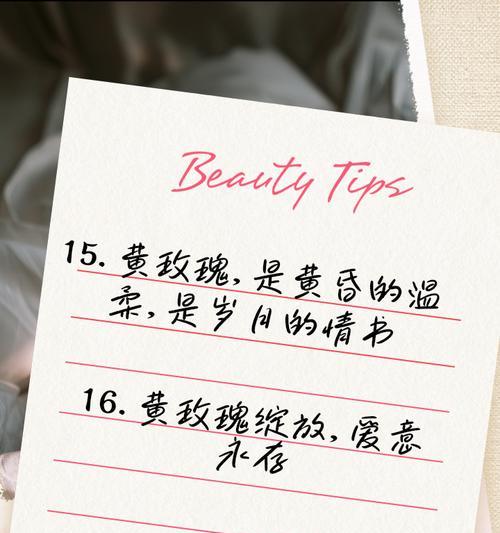 Beauty Tips
15. 黄玫瑰,是黄昏的温
柔,是岁月的情书
16. 黄玫瑰绽放,爱意
永存